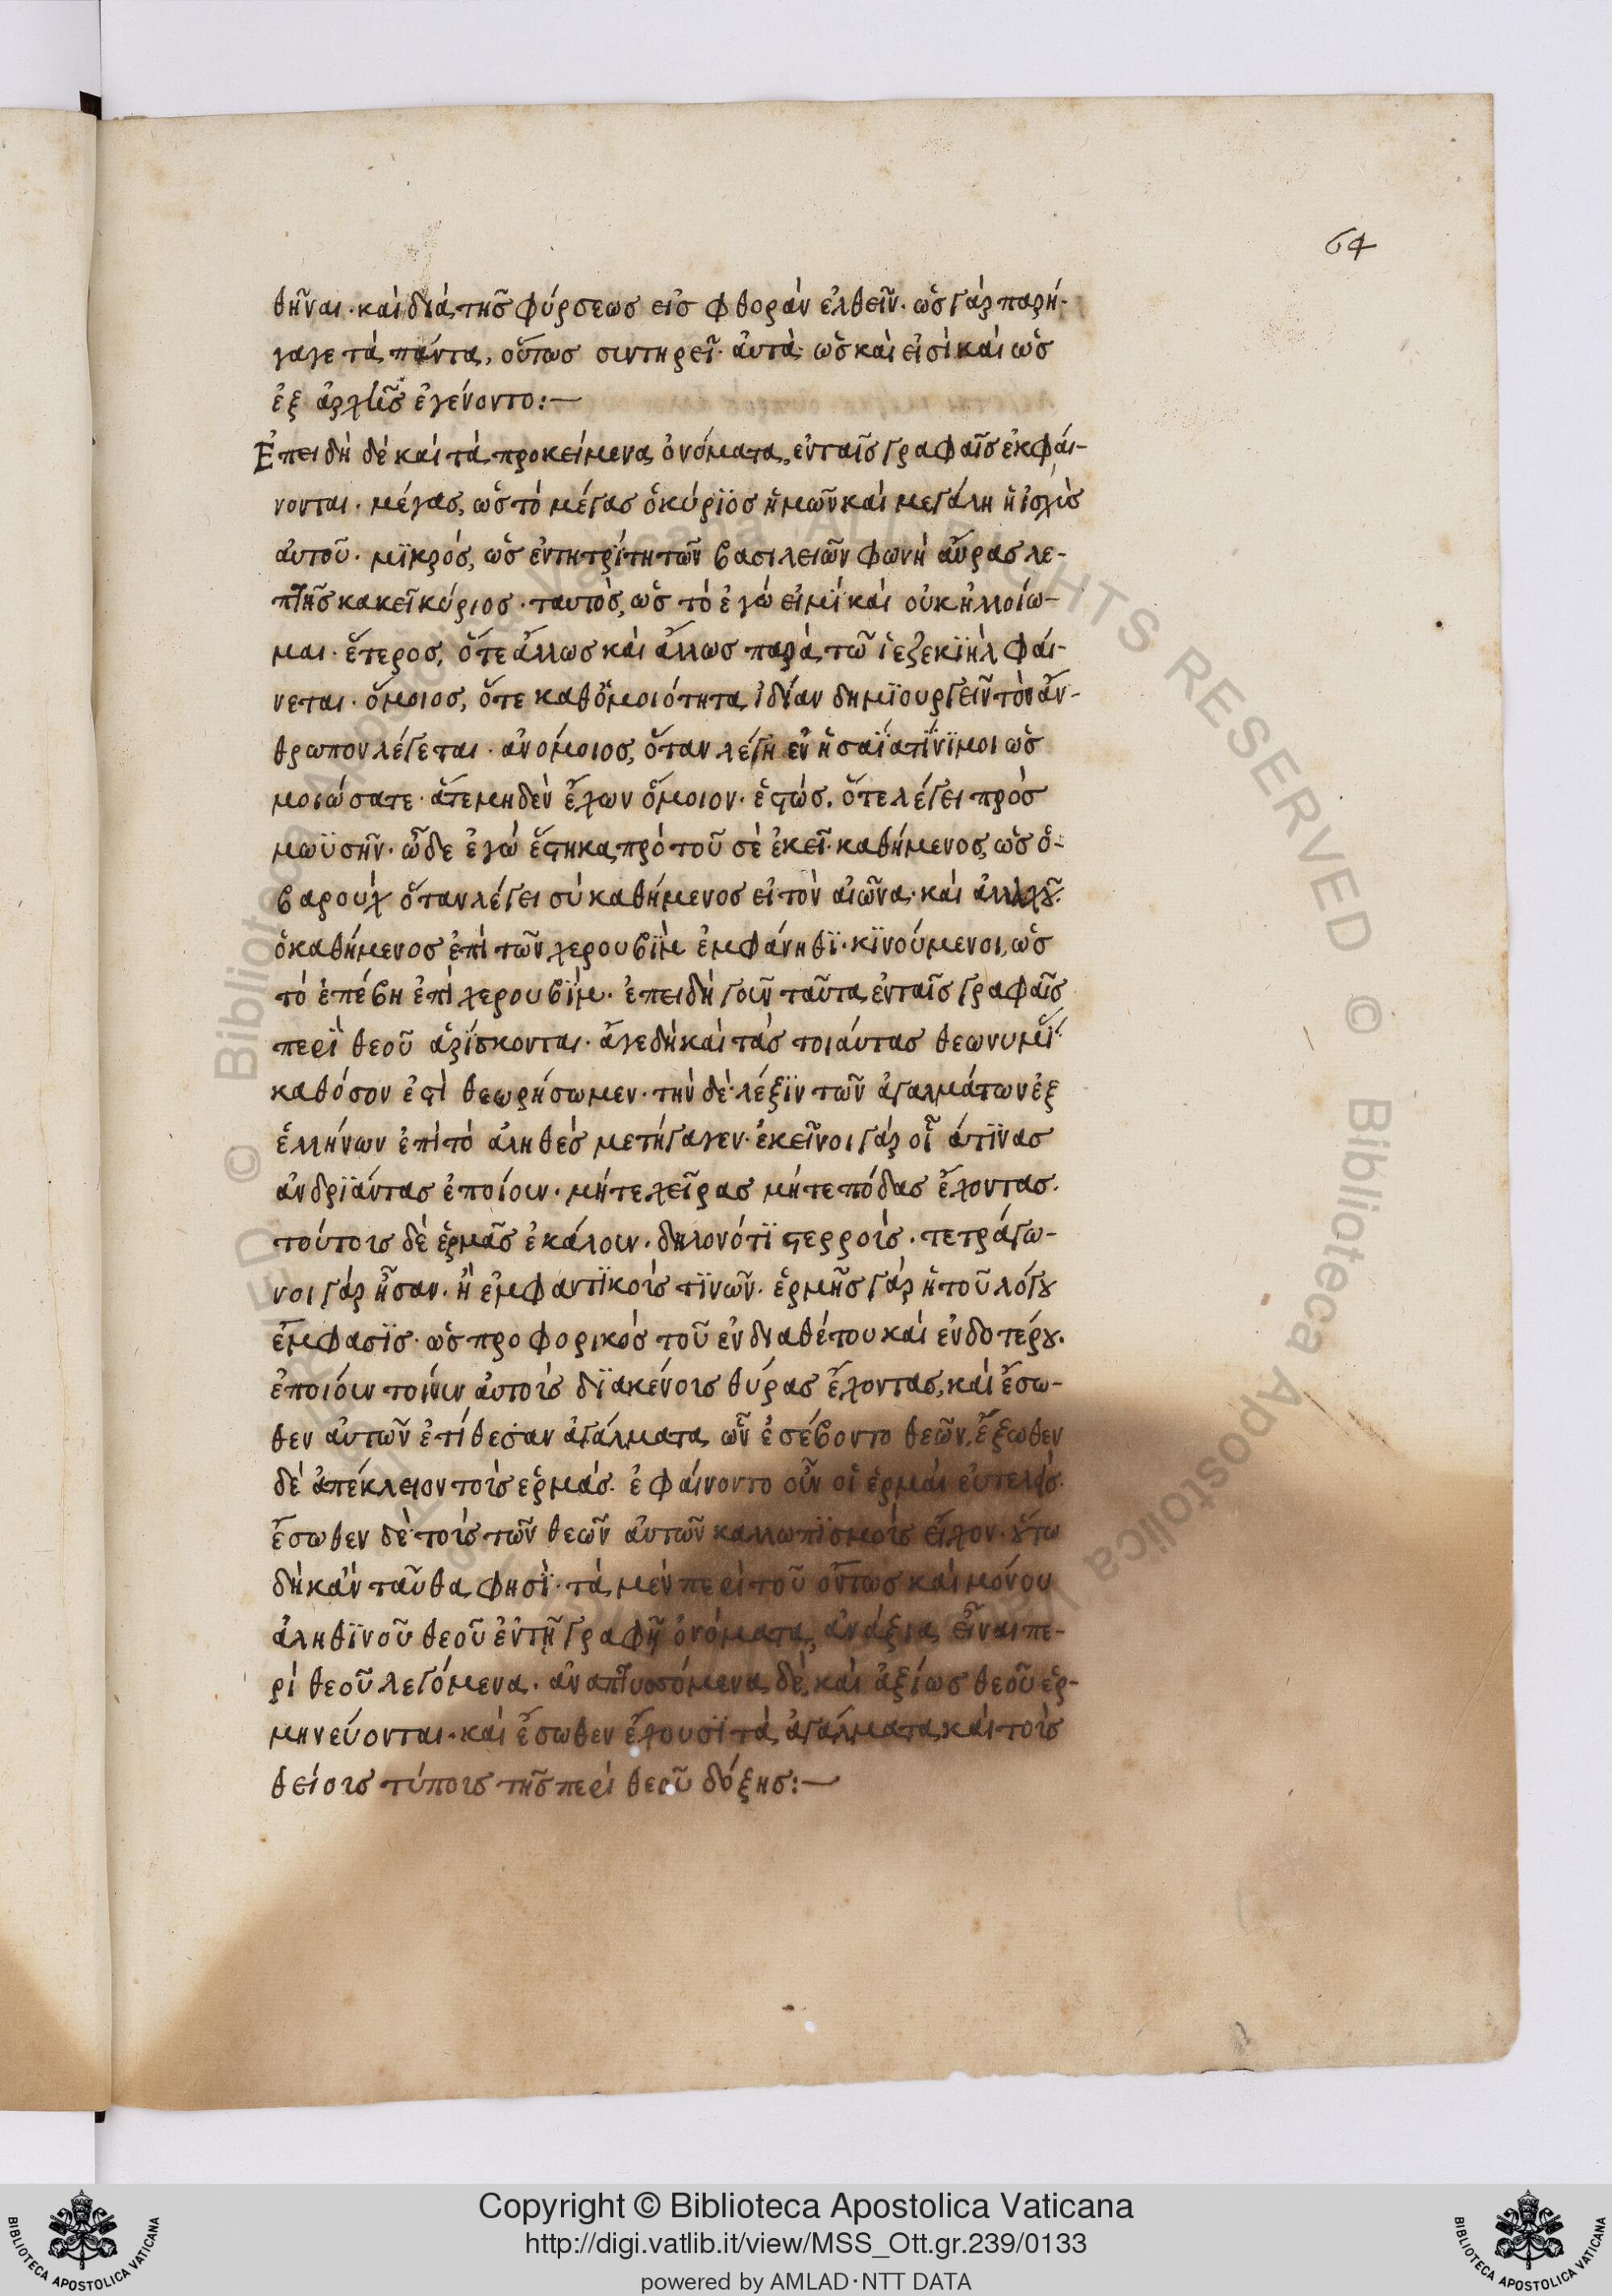 64
θῆναι· καὶ διὰ τῆσ φύρσεωσ εἰσ φθορὰν ἐλθεῖν· ὡσ γὰρ παρή-
γαγε τὰ πάντα, οὕτωσ συντηρεῖ αὐτὰ· ὡσ καὶ εἰσὶ καὶ ὡσ
ἐξ ἀρχῆσ ἐγένοντο:—
Ἐπειδὴ δὲ καὶ τὰ προκείμενα ὀνόματα, ἐν ταῖσ γραφαῖσ ἐκφαί-
νονται· μέγασ, ὡσ τὸ μέγασ ὁ κύρϊοσ ἡμῶν καὶ μεγάλη ἡ ἰσχὺσ
αὐτοῦ· μϊκρόσ, ὡσ ἐν τη τρίτη τῶν βασιλειῶν φωνὴ αὔρασ λε-
πτῆσ κακεῖ κύριοσ· ταυτὸσ, ὡσ τὸ ἐγώ εἰμϊ καὶ οὐκ ἠλλοίω-
μαι· ἕτεροσ, ὅτε ἄλλωσ καὶ ἄλλωσ παρὰ τῶ ἰεζεκϊὴλ φαί-
νεται· ὅμοιοσ, ὅτε καθ ὁμοιότητα ἰδίαν δημϊουργεῖν τὸν ἄν-
θρωπον λέγεται· ἀνόμοιοσ, ὅταν λέγη ἐν ἠσαΐα τίνϊ μοι ὡσ
μοιώσατε· ἅτε μηδὲν ἔχων ὅμοιον· ἑστώσ, ὅτε λέγει πρὸσ
μωϋσῆν· ὧδε ἐγὼ ἕστηκα πρὸ τοῦ σὲ ἐκεῖ· καθήμενοσ, ὡσ ὁ-
βαροὺχ ὅταν λέγει σὺ καθήμενοσ εἰ τὸν αἰῶνα· καὶ ἀλλαχοῦ·
ὁ καθήμενοσ ἐπὶ τῶν χερουβϊμ ἐμφάνηθϊ· κϊνούμενοι, ὡσ
τὸ ἐπέβη ἐπὶ χερουβϊμ· ἐπειδὴ γοῦν ταῦτα ἐν ταῖσ γραφαῖσ
περὶ θεοῦ εὑρίσκονται· ἄγε δὴ καὶ τὰσ τοιαύτασ θεωνυμί
καθόσον ἐστὶ θεωρήσωμεν· τὴν δὲ λέξϊν τῶν ἀγαλμάτων ἐξ
ἑλλήνων ἐπὶ τὸ ἀληθὲσ μετήγαγεν· ἐκεῖνοι γὰρ οἷά τϊνασ
ἀνδρϊάντασ ἐποίουν· μήτε χεῖρασ μήτε πόδασ ἔχοντασ·
τούτουσ δὲ ἑρμᾶσ ἐκάλουν· δηλονότϊ στερρούσ· τετράγω-
νοι γὰρ ἦσαν· ἢ ἐμφαντϊκοὺσ τϊνῶν· ἑρμῆσ γὰρ ἡ τοῦ λόγου
ἔμφασϊσ· ὡσ προφορικὸσ τοῦ ἐνδιαθέτου καὶ ἐνδοτέρου·
ἐποίουν τοίνυν αὐτοὺσ δϊακένουσ θύρασ ἔχοντασ, καὶ ἔσω-
θεν αὐτῶν ἐτίθεσαν ἀγάλματα ὧν ἐσέβοντο θεῶν, ἔξωθεν
δὲ ἀπέκλειον τοὺσ ἑρμάσ· ἐφαίνοντο οὖν οἱ ἑρμαὶ εὐτελεῖσ·
ἔσωθεν δὲ τοὺσ τῶν θεῶν αὐτῶν καλλωπϊσμοὺσ εἶχον· οὕτω
δὴ κἀν ταῦθα φησὶ· τὰ μὲν περὶ τοῦ ὄντωσ καὶ μόνου
ἀληθϊνοῦ θεοῦ ἐν τῆ γραφῆ ὀνόματα, ἀνάξια εἶναι πε-
ρὶ θεοῦ λεγόμενα· ἀναπτυσσόμενα δὲ, καὶ ἀξίωσ θεοῦ ἑρ-
μηνεύονται· καὶ ἔσωθεν ἔχουσϊ τὰ ἀγάλματα καὶ τοὺσ
θείουσ τύπουσ τῆσ περὶ θεοῦ δόξησ:—
Copyright © Biblioteca Apostolica Vaticana
http://digi.vatlib.it/view/MSS_Ott.gr.239/0133
powered by AMLAD·NTT DATA